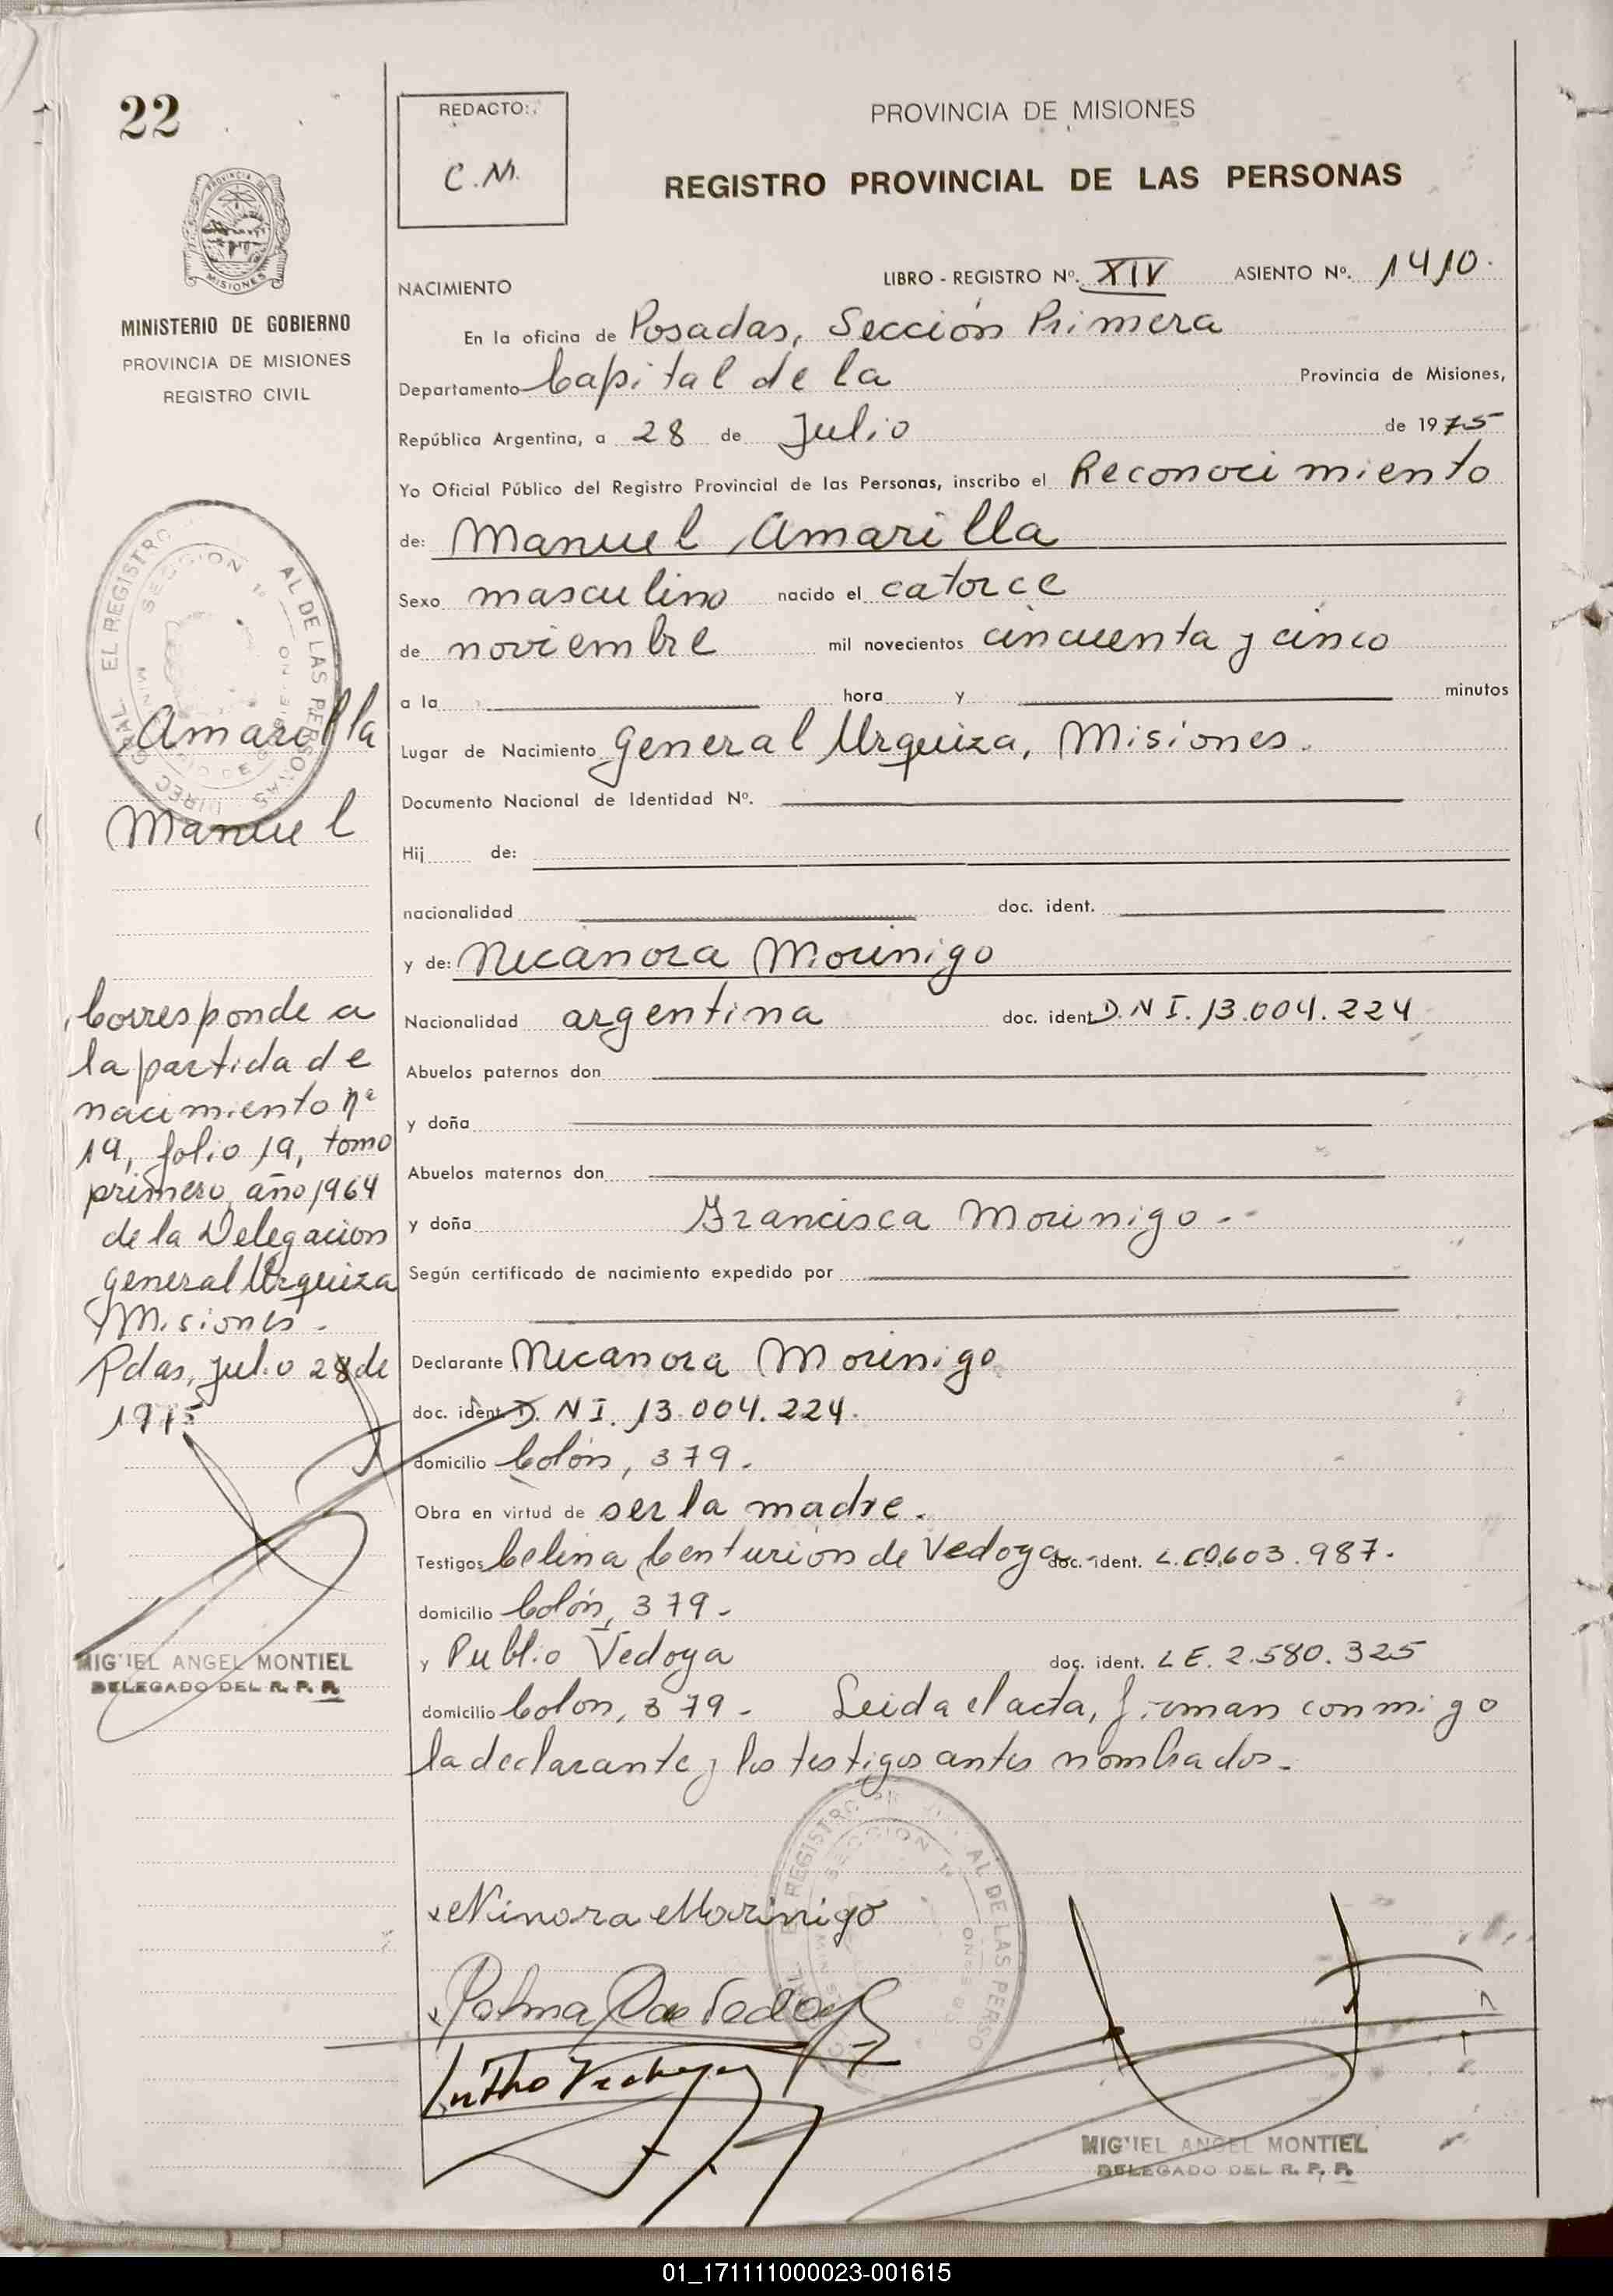 22
REDACTO:
C.M.
PROVINCIA DE MISIONES
REGISTRO PROVINCIAL DE LAS PERSONAS
MINISTERIO DE GOBIERNO
PROVINCIA DE MISIONES
REGISTRO CIVIL
NACIMIENTO
LIBRO - REGISTRO Nº. XIV ASIENTO Nº. 1410.
En la oficina de Posadas, Sección Primera
Departamento Capital de la Provincia de Misiones,
República Argentina, a 28 de Julio de 1975
Yo Oficial Público del Registro Provincial de las Personas, inscribo el Reconocimiento
de: Manuel Amarilla
Sexo masculino nacido el catorce
de noviembre mil novecientos cincuenta y cinco
a la hora y minutos
Lugar de Nacimiento General Urquiza, Misiones.
Documento Nacional de Identidad Nº.
Hij de:
nacionalidad doc. ident.
y de: Nicanora Morinigo
Nacionalidad argentina doc. ident D.N I. 13.004.224
Abuelos paternos don
y doña
Abuelos maternos don
y doña Francisca Morinigo.--
Según certificado de nacimiento expedido por
Declarante Nicanora Morinigo
doc. ident D. N I. 13.004.224.
domicilio Colón, 379.
Obra en virtud de ser la madre.
Testigos Celina Centurión de Vedoya doc. ident. L.C 0.603.987.
domicilio Colón, 379.
y Publio Vedoya doc. ident. L E. 2.580.325
domicilio Colon, 379. Leida el acta, firman conmigo
la declarante y los testigos antes nombrados.
Amarilla
Manuel
Corresponde a
la partida de
nacimiento nº
19, folio 19, tomo
primero, año 1964
de la Delegacion
General Urquiza
Misiones.
Pdas, Julio 28 de
1975
MIGUEL ANGEL MONTIEL
DELEGADO DEL R. P. P.
EL REGISTRO AL DE LAS PERSONAS
SECCION 1ª
x Ninora Morinigo
REGISTRO AL DE LAS PERSO
SECCION 1ª
MIGUEL ANGEL MONTIEL
DELEGADO DEL R. P. P.
01_171111000023-001615